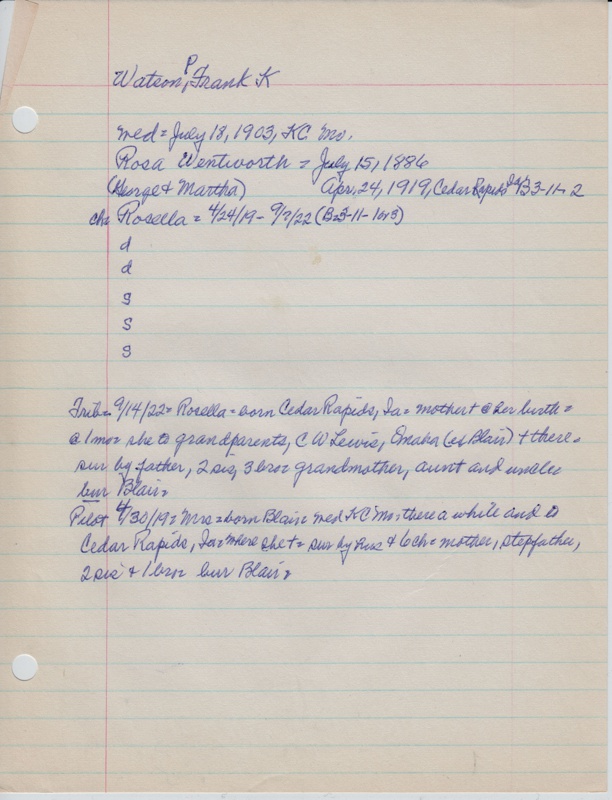 P
Watson, Frank K
med = July 18, 1903, KC Mo.
Rosa Wentworth = July 15, 1886
(George & Martha) Apr. 24, 1919, Cedar Rapids Ia B3-11-2
ch = Rosella = 4/24/19 - 9/?/22 (B=3-11-1or3)
d
d
s
s
s
Trib = 9/14/22 = Rosella = born Cedar Rapids, Ia = mother + @ her birth =
@ 1 mo = she to grandparents, C W Lewis, Omaha (es Blair) + there =
sur by father, 2 sis, 3 bro = grandmother, aunt and uncles
bur Blair =
Pilot 4/30/19 = Mrs = born Blair = med KC Mo, there a while and to
Cedar Rapids, Ia = where she + = sur by hus & 6 ch = mother, stepfather,
2 sis + 1 bro = bur Blair =